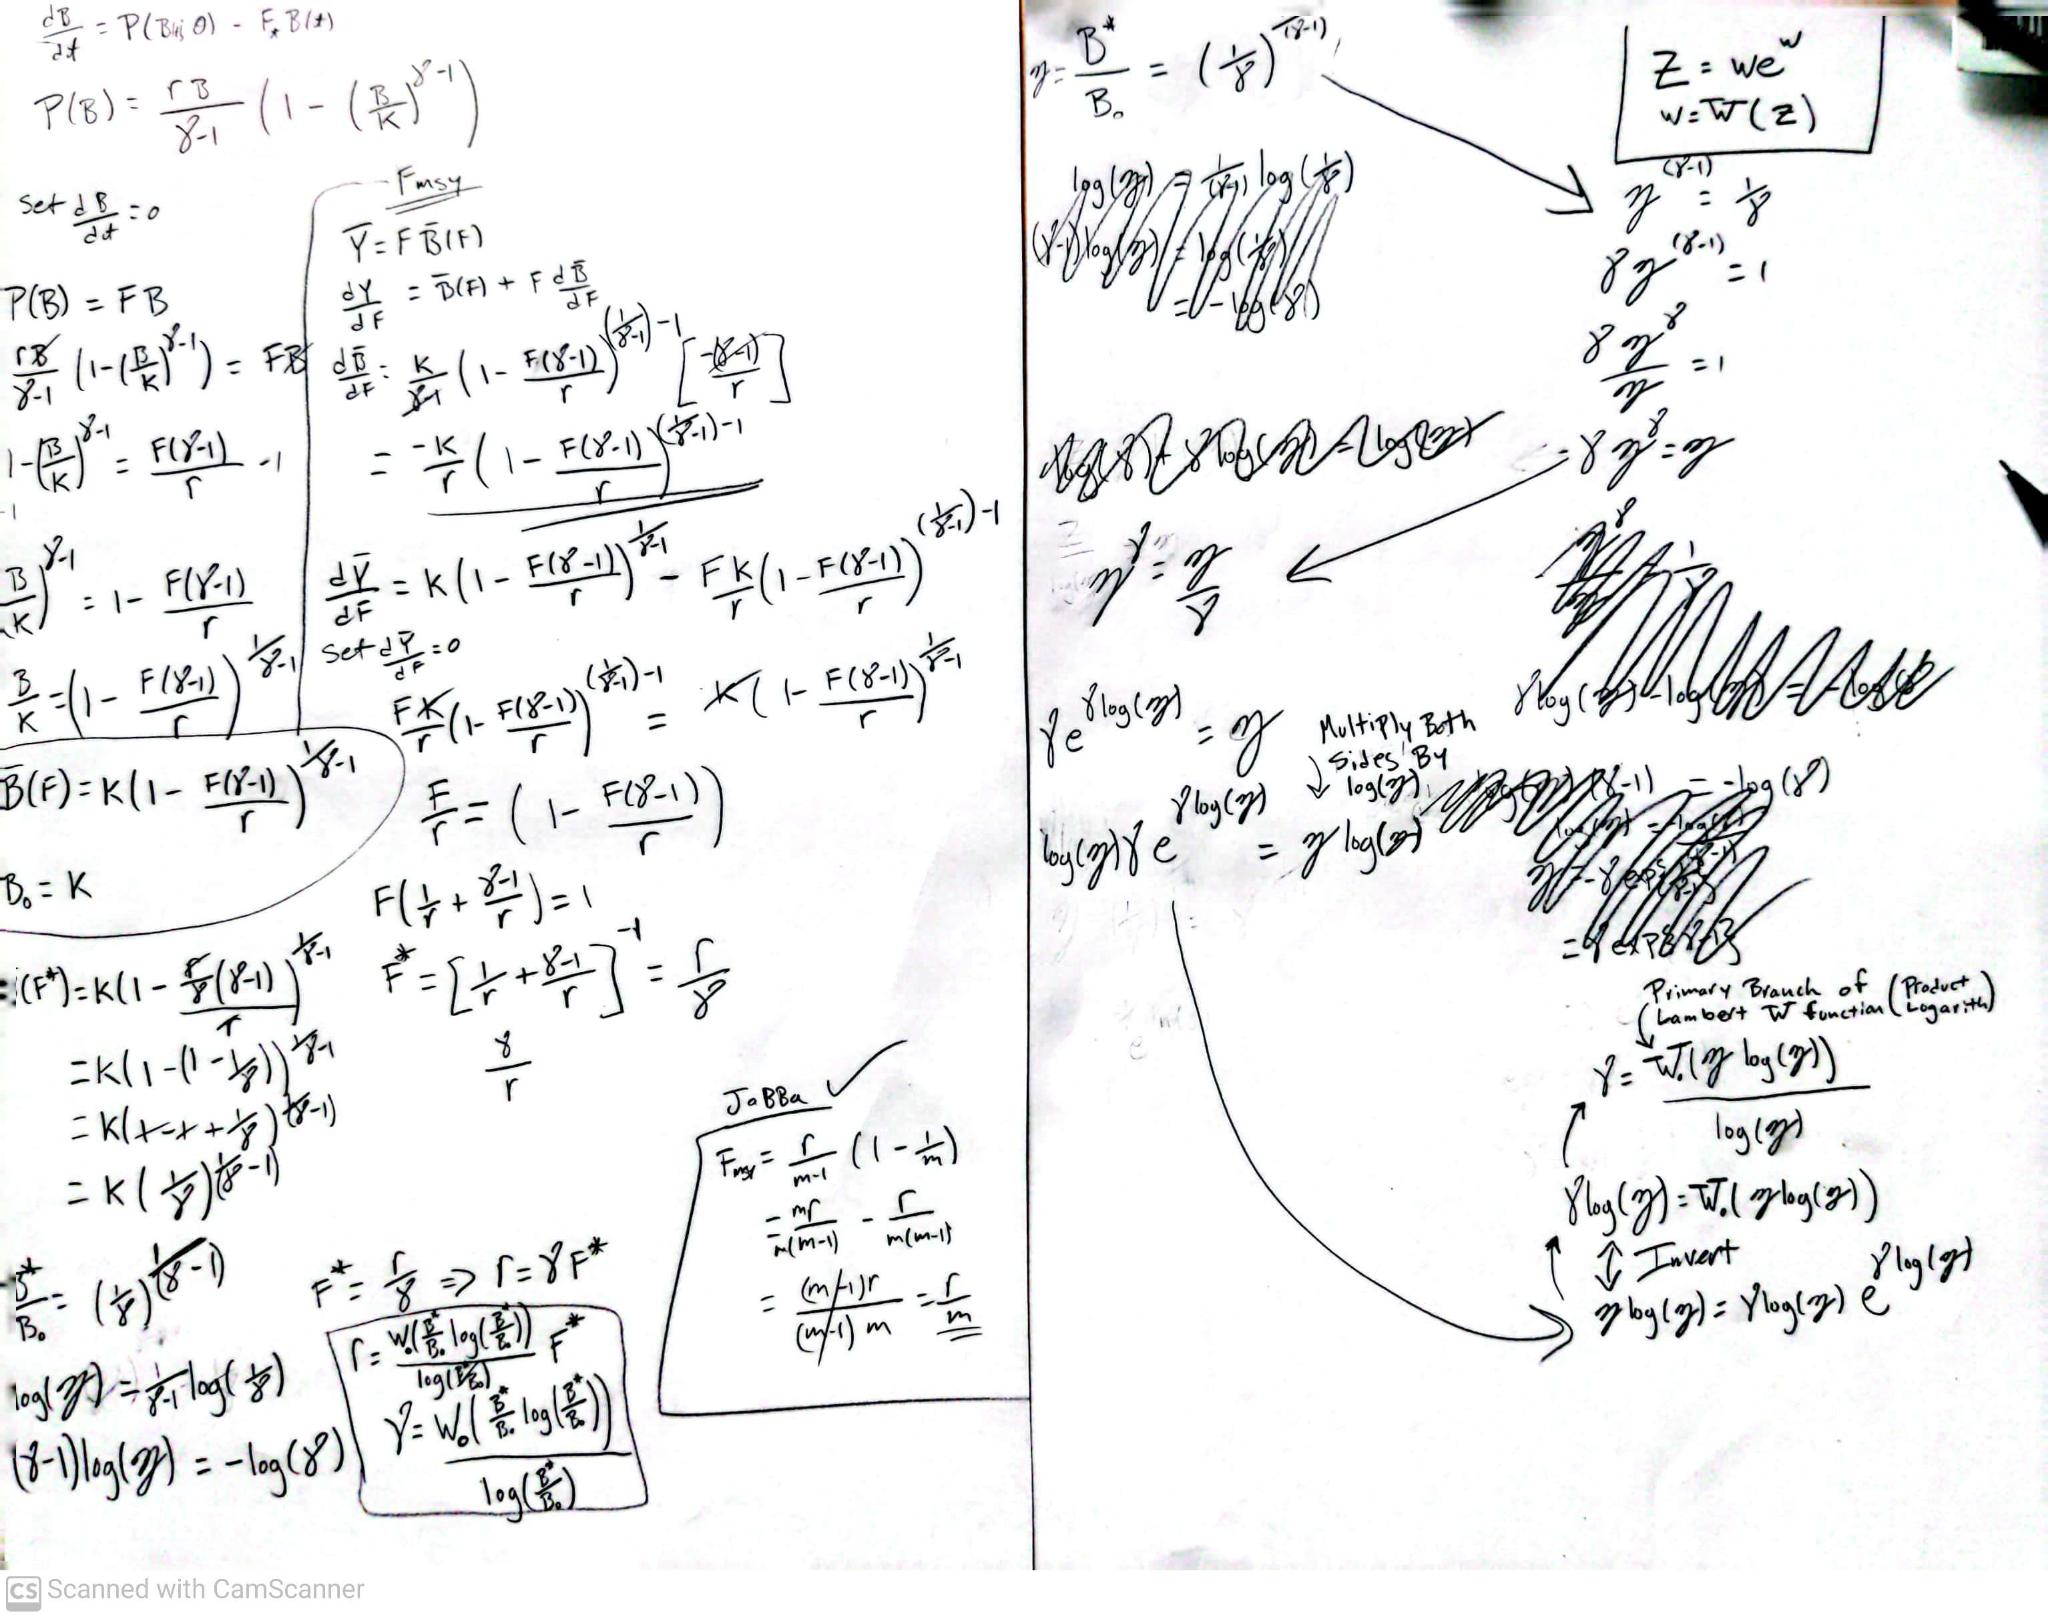 dB/dt = P(B(t); θ) - F* B(t)
P(B) = rB/(γ-1) (1 - (B/K)^(γ-1))
Set dB/dt = 0
P(B) = FB
rB/(γ-1) (1-(B/K)^(γ-1)) = FB
1-(B/K)^(γ-1) = F(γ-1)/r -1
-1
(B/K)^(γ-1) = 1- F(γ-1)/r
B/K = (1- F(γ-1)/r)^(1/(γ-1))
B̄(F) = K(1- F(γ-1)/r)^(1/(γ-1))
B₀ = K
(F*) = K(1- r/γ(γ-1)/r)^(1/(γ-1))
= K(1-(1-1/γ))^(1/(γ-1))
= K(1-1+1/γ)^(1/(γ-1))
= K(1/γ)^(1/(γ-1))
B*/B₀ = (1/γ)^(1/(γ-1))
log(y) = 1/(γ-1) log(1/γ)
(γ-1)log(y) = -log(γ)
Fmsy
Ȳ = F B̄(F)
dȲ/dF = B̄(F) + F dB̄/dF
dB̄/dF = K/(γ-1) (1- F(γ-1)/r)^((1/(γ-1))-1) [-(γ-1)/r]
= -K/r (1- F(γ-1)/r)^((1/(γ-1))-1)
dȲ/dF = K(1- F(γ-1)/r)^(1/(γ-1)) - FK/r (1- F(γ-1)/r)^((1/(γ-1))-1)
Set dȲ/dF = 0
FK/r (1- F(γ-1)/r)^((1/(γ-1))-1) = K(1- F(γ-1)/r)^(1/(γ-1))
F/r = (1- F(γ-1)/r)
F(1/r + (γ-1)/r) = 1
F* = [1/r + (γ-1)/r]^-1 = r/γ
γ/r
F* = r/γ => r = γF*
r = W₀(B*/B₀ log(B*/B₀))/log(B*/B₀) F*
γ = W₀(B*/B₀ log(B*/B₀))/log(B*/B₀)
JaBBa ✓
Fmsy = r/(m-1) (1 - 1/m)
= mr/(m(m-1)) - r/(m(m-1))
= (m-1)r/((m-1)m) = r/m
y = B*/B₀ = (1/γ)^(1/(γ-1))
log(y) = 1/(γ-1) log(1/γ)
(γ-1)log(y) = log(1/γ)
= -log(γ)
log(γ) + γlog(y) = log(y)
y^γ = y/γ
γe^(γlog(y)) = y
Multiply Both
Sides By
↓ log(y)
log(y)γe^(γlog(y)) = y log(y)
Z = we^w
w = W(Z)
y^(γ-1) = 1/γ
γy^(γ-1) = 1
γy^γ/y = 1
= γy^γ = y
γlog(y) - log(y) = -log(γ)
log(y)(γ-1) = -log(γ)
Primary Branch of
Lambert W function (Product Logarith)
γ = W₀(y log(y))/log(y)
γlog(y) = W₀(ylog(y))
Invert
ylog(y) = γlog(y) e^(γlog(y))
CS Scanned with CamScanner